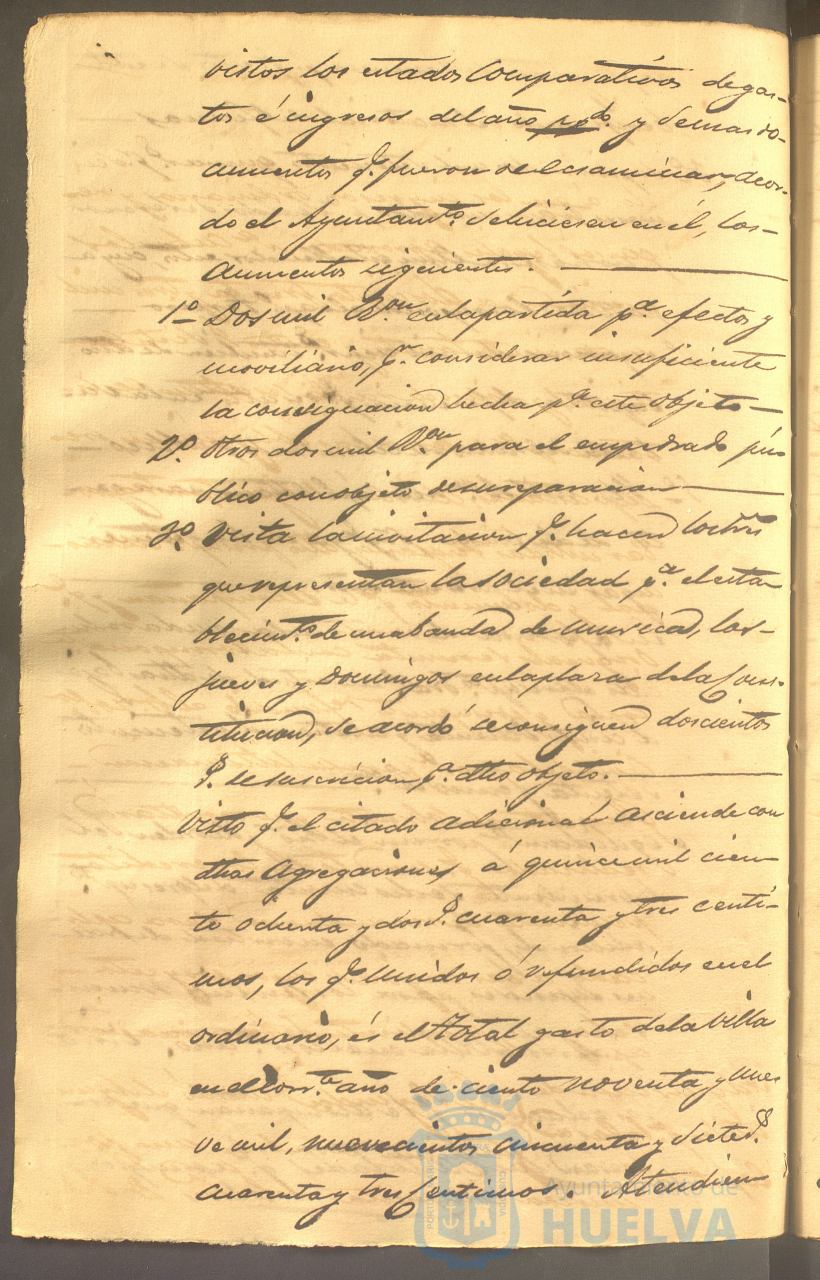 vistos los estados Comparativos de gas-
tos é ingresos del año ppdo. y demas do-
cumentos qe. fueron de Ecsaminar, acor-
do el Ayuntamto. se hiciesen en él, los-
Aumentos siguientes.
1º Dos mil Ron en la partida pa. efectos y
moviliario, pr. considerar insuficiente
la consignacion hecha pa. este objeto
2º. Otros dos mil Ron para el empedrado pú-
blico con objeto de su reparacion
3º. Vista la invitacion qe. hacen los Sres
que representan la Sociedad pa. el esta-
blecimto. de una banda de musica, los-
jueves y Domingos en la plaza de la Cons-
titucion, se acordó se consignen doscientos
rs. de suscricion pa. dho objeto.
Visto qe. el citado Adicional asciende con
dhas Agregaciones á quince mil cien-
to ochenta y dos rs. cuarenta y tres centi-
mos, los qe. unidos ó refundidos en el
ordinario, és el total gasto de la villa
en el corrte. año de ciento noventa y nue-
ve mil, nuevecientos cincuenta y siete rs.
cuarenta y tres Centimos. Atendien-
Ayuntamiento de
HUELVA